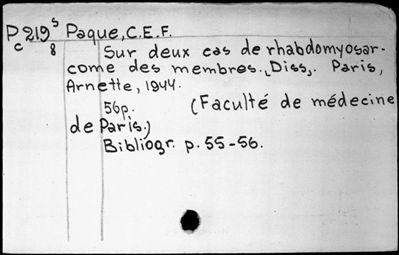 P219⁵ Paque, C.E.F.
c 8 Sur deux cas de rhabdomyosar-
come des membres. (Diss). Paris,
Arnette, 1944.
56p. (Faculté de médecine
de Paris.)
Bibliogr. p. 55-56.